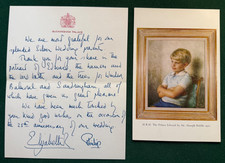 BUCKINGHAM PALACE
We are most grateful for our
splendid Silver Wedding presents.
Thank you for giving us the
portrait of Edward, the
and the for Windsor,
Balmoral and Sandringham, all of
which have given us great pleasure
We have been much touched by
your kind good wishes, on the occasion of
the 25th anniversary of our wedding.
Elizabeth R
Philip
H.R.H. The Prince Edward